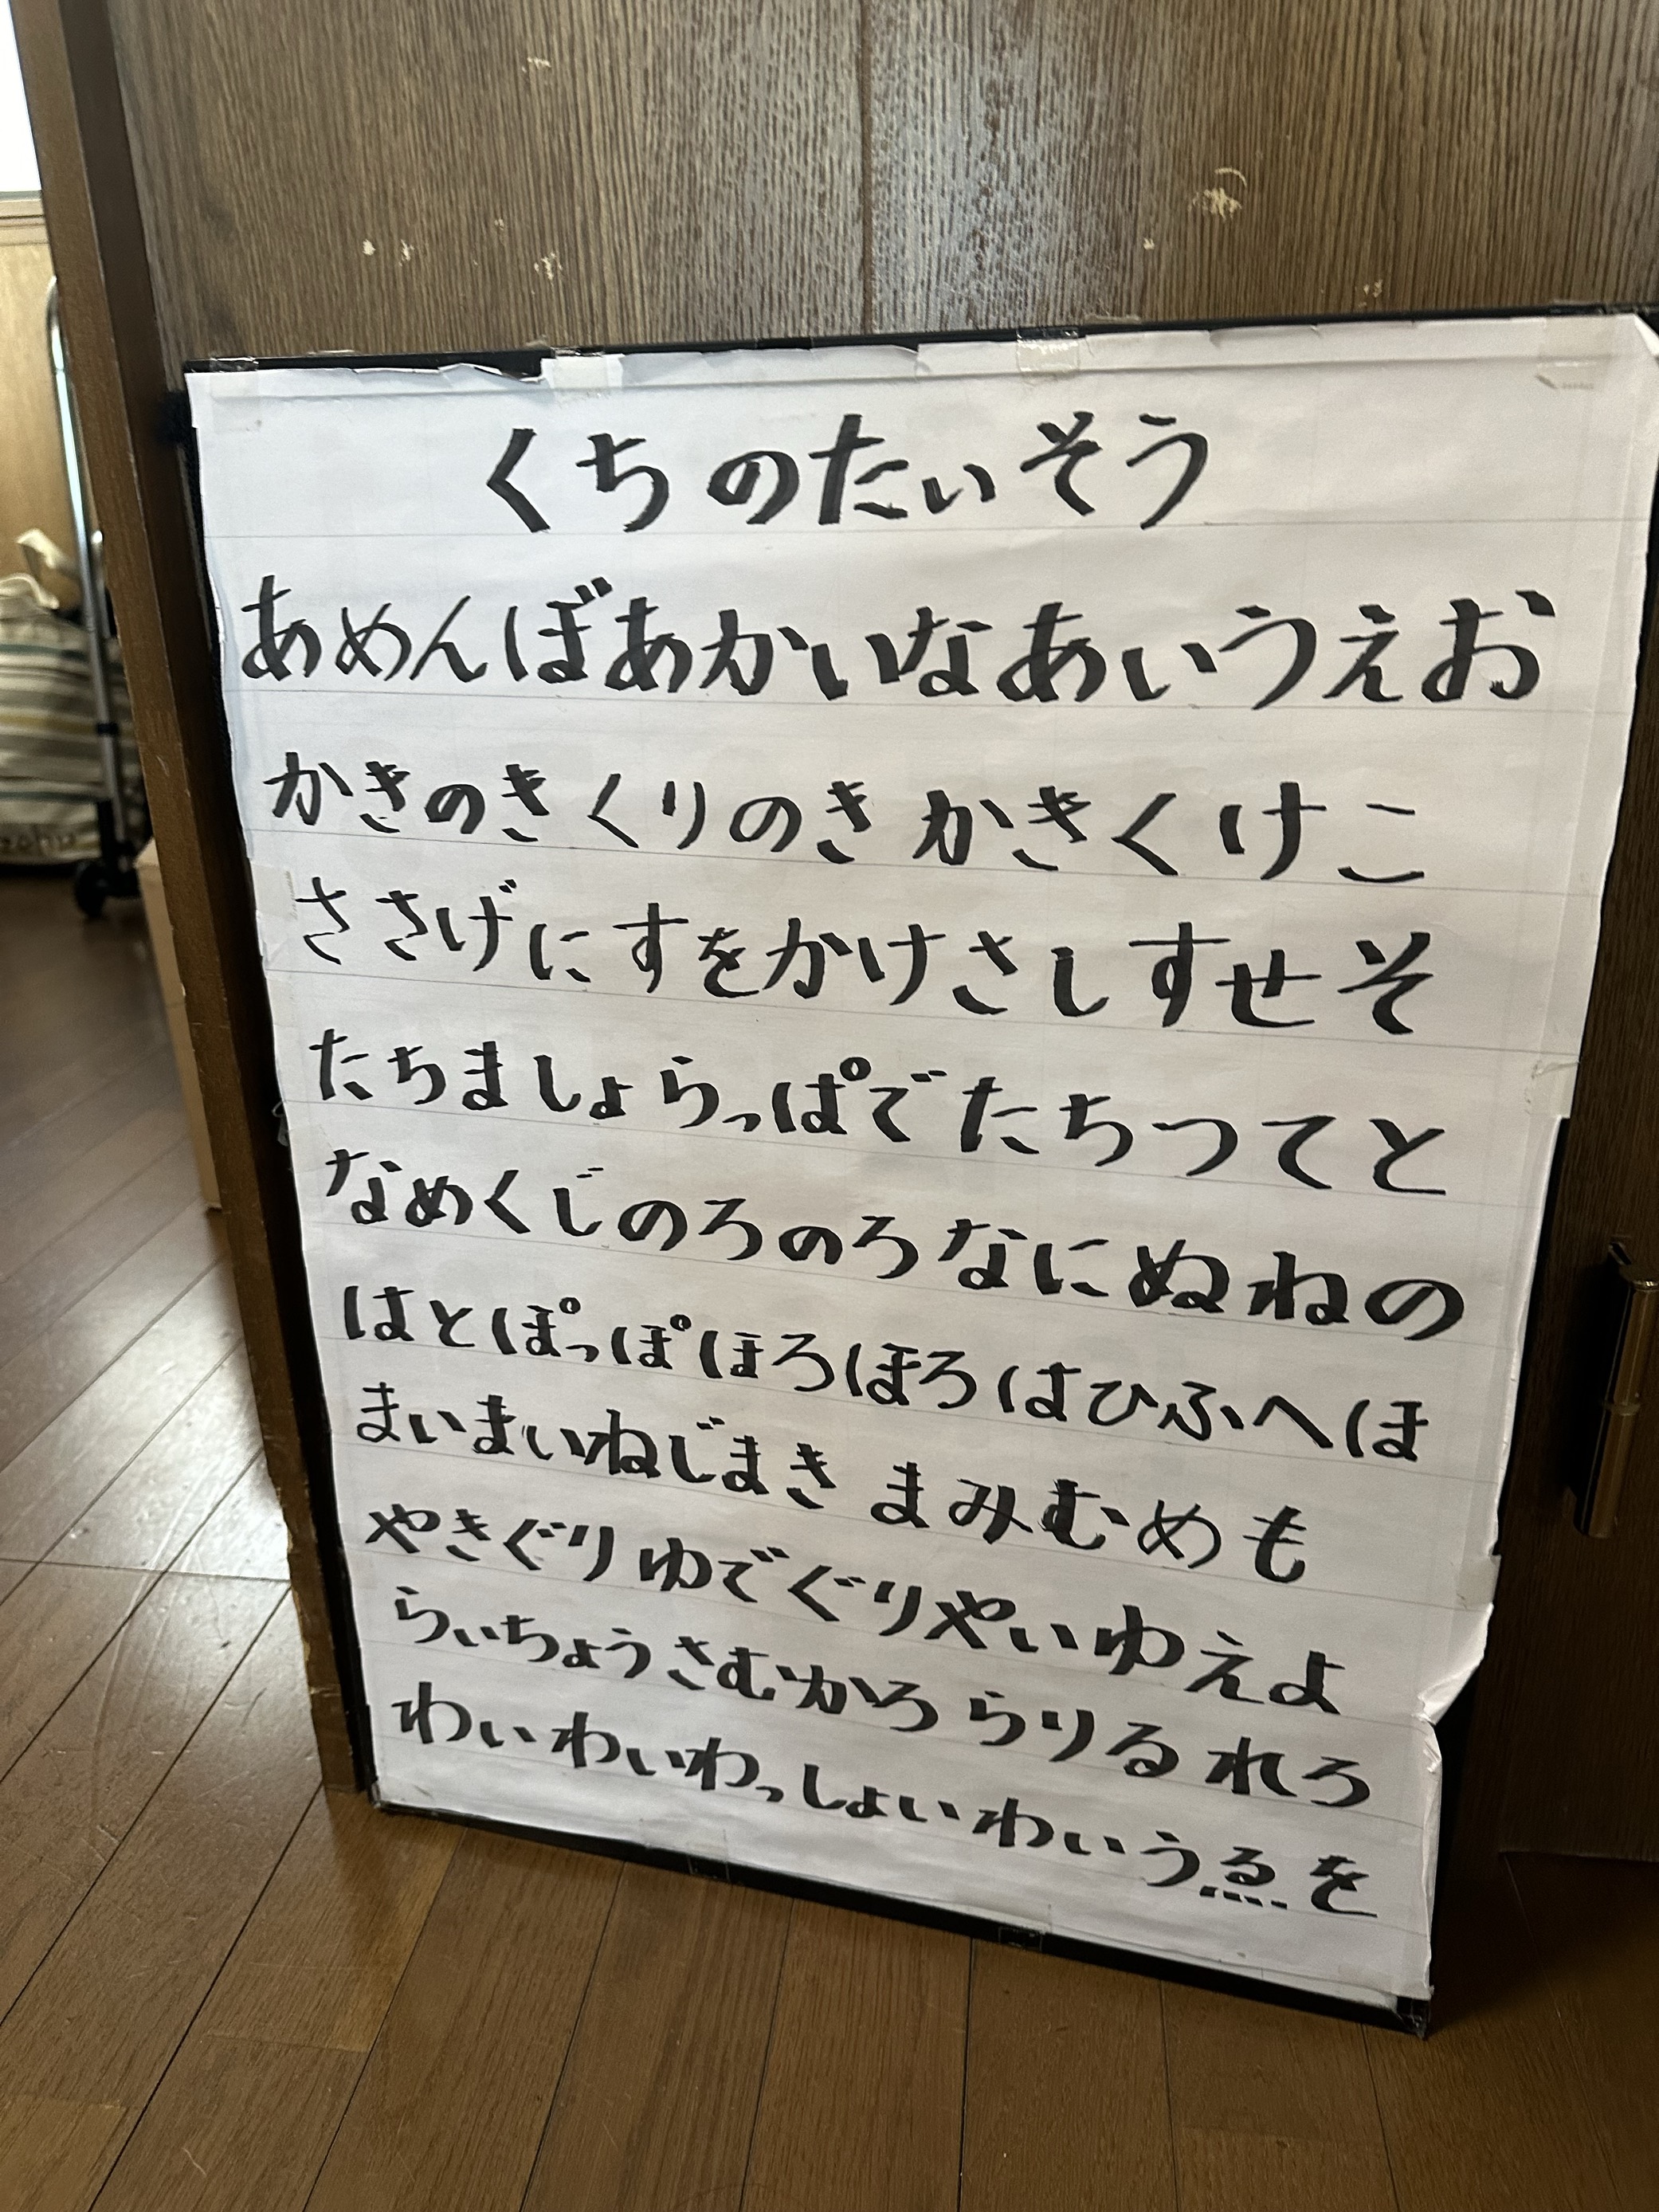 くちのたいそう
あめんぼあかいなあいうえお
かきのきくりのきかきくけこ
ささげにすをかけさしすせそ
たちましょらっぱでたちつてと
なめくじのろのろなにぬねの
はとぽっぽほろほろはひふへほ
まいまいねじまきまみむめも
やきぐりゆでぐりやいゆえよ
らいちょうさむかろらりるれろ
わいわいわっしょいわいうゑを